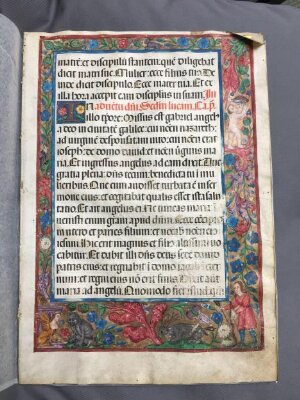 matrē et discipulū stantem quē diligebat
dicit matri sue Mulier ecce filius tuus De
inde dicit discipulo Ecce mater tua Et ex
illa hora accepit eam discipulus in suam In
illo tpore Missus est gabriel angelus
a deo in civitatē galilee cui nomē nazareth
ad virginē desponsatam viro cui nomē erat
ioseph de domo david et nomē virginis ma
ria Et ingressus angelus ad eam dixit Ave
gratia plena dñs tecum benedicta tu in mu
lieribus Que cum audisset turbata ē in ser
mone eius et cogitabat qualis esset ista salu
tatio Et ait angelus ei Ne timeas maria
venisti enim gratiā apud deum Ecce cōcipies
in utero et paries filium et vocabis nomē eius
iesum Hic erit magnus et filius altissimi vo
cabitur Et dabit illi dñs deus sedē david
patris eius et regnabit ī domo iacob in eter
num et regni eius nō erit finis Dixit aut
maria ad angelū Quomodo fiet istud